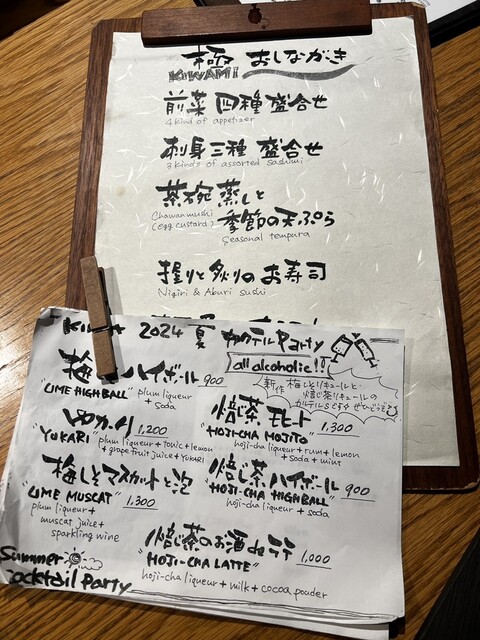 極 おしながき
KIWAMI
前菜 四種 盛合せ
4 kind of appetizer
刺身 三種 盛合せ
3 kinds of assorted sashimi
茶碗 蒸しと
Chawanmushi
(egg custard)
季節の天ぷら
Seasonal tempura
握りと炙りのお寿司
Nigiri & Aburi sushi
2024 夏 カクテルParty
all alcoholic!!
新作 梅しそリキュールと
焙じ茶リキュールの
カクテルS
ハイボール 900
"UME HIGHBALL" plum liqueur
+ soda
ゆかり 1,200
"YUKARI" plum liqueur + tonic + lemon
+ grape fruit juice + YUKARI
梅しそマスカットと泡
"UME MUSCAT" 1,300
plum liqueur +
muscat juice +
sparkling wine
焙じ茶 モヒート 1,300
"HOJI-CHA MOJITO"
hoji-cha liqueur + rum + lemon
+ soda + mint
焙じ茶 ハイボール 900
"HOJI-CHA HIGHBALL"
hoji-cha liqueur + soda
焙じ茶のお酒 de ラテ 1,000
"HOJI-CHA LATTE"
hoji-cha liqueur + milk + cocoa powder
Summer
Cocktail Party